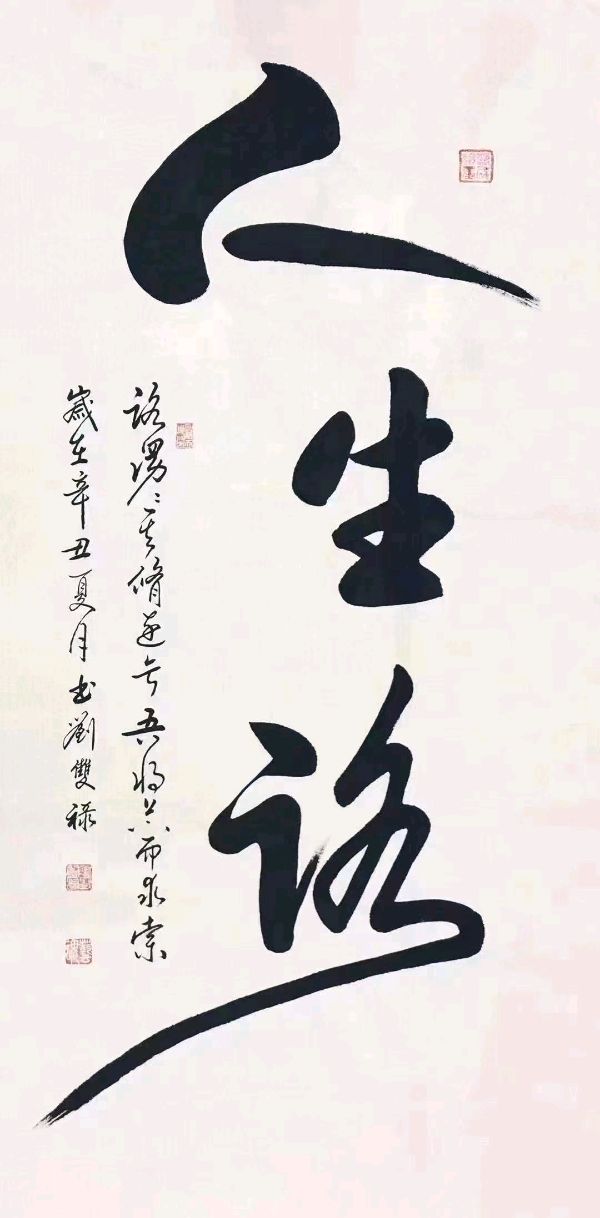 人生路
路曼々其脩遠兮吾將上下而求索
歲在辛丑夏月书劉雙祿